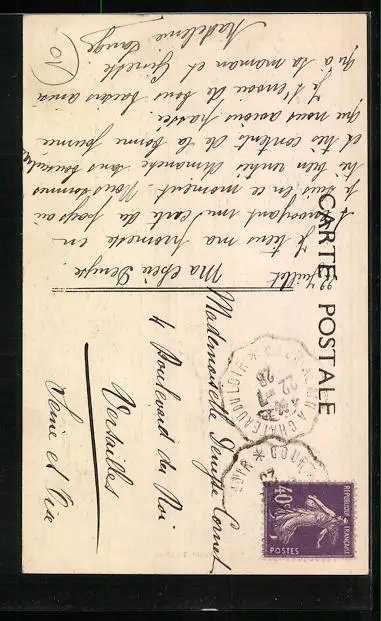 CARTE POSTALE
22 Juillet
Ma chère Denyse,
Je tiens ma promesse en
t'envoyant une carte du pays où
je suis en ce moment. Nous sommes
très bien rentrés dimanche sans bousculade
et très contents de la bonne journée
que nous avons passée.
Je t'envoie de bons baisers ainsi
qu'à ta maman et Ginette
Madeleine
Mademoiselle Denyse Cornet
4 Boulevard du Roi
Versailles
Seine et Oise
22 -7
28
RÉPUBLIQUE FRANÇAISE
40c
POSTES